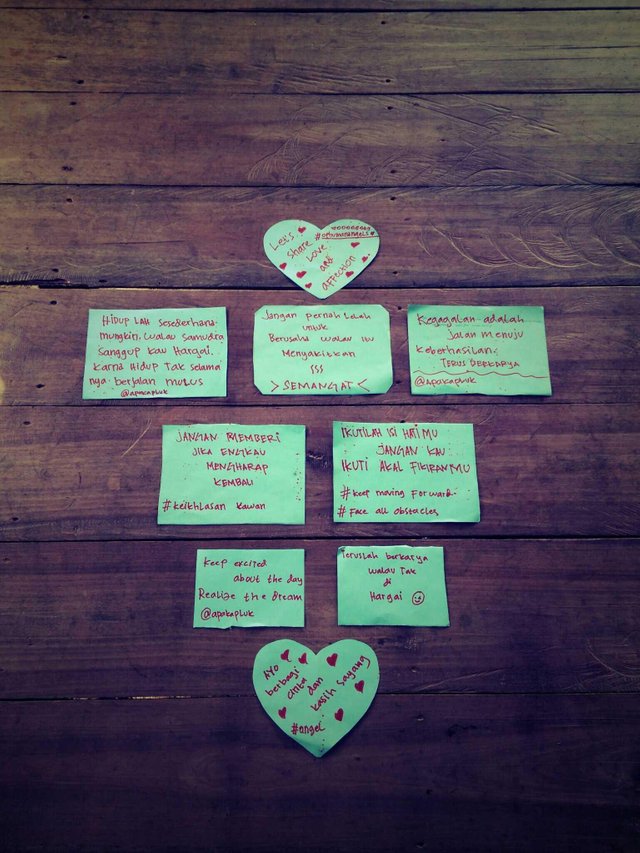 Let's
share
Love
and
affection
HIDUP LAH sesederhana
mungkin, walau samudra
sanggup kau Hargai.
karna Hidup Tak selama
nya berjalan mulus
@apakapluk
Jangan pernah Lelah
untuk
Berusaha walau itu
Menyakitkan
SSS
> SEMANGAT <
Kegagalan adalah
jalan menuju
Keberhasilan.
TERUS BERKARYA
@apakapluk
JANGAN MEMBERI
JIKA ENGKAU
MENGHARAP
KEMBALI
#keikhlasan kawan
IKUTILAH ISI HATIMU
JANGAN KAU
IKUTI AKAL FIKIRANMU
#keep moving Forward.
#Face all obstacles
Keep excited
about the day
Realize the dream
@apakapluk
Teruslah berkarya
walau Tak
di
Hargai
AYO
berbagi
cinta
dan
kasih sayang
#angel